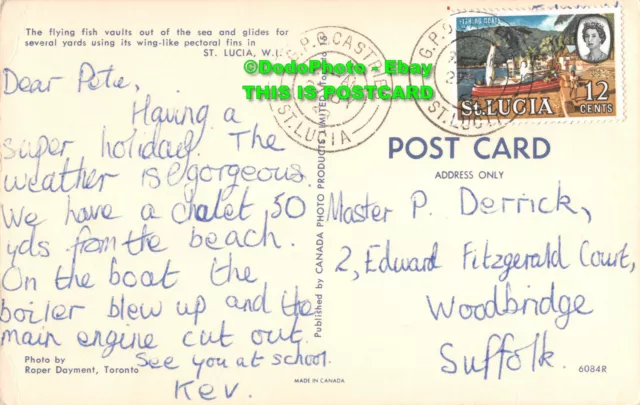 The flying fish vaults out of the sea and glides for
several yards using its wing-like pectoral fins in
ST. LUCIA, W.I.
©DodoPhoto - Ebay
THIS IS POSTCARD
Dear Pete,
Having a
super holiday. The
weather is gorgeous.
We have a chalet 50
yds from the beach.
On the boat the
boiler blew up and the
main engine cut out.
See you at school.
Kev.
Photo by
Roper Dayment, Toronto
MADE IN CANADA
Published by CANADA PHOTO PRODUCTS LIMITED
G.P.O. CASTRIES
ST. LUCIA
G.P.O.
ST. LUCIA
FISHING BOATS
ST. LUCIA
12
CENTS
POST CARD
ADDRESS ONLY
Master P. Derrick,
2, Edward Fitzgerald Court,
Woodbridge
Suffolk.
6084R